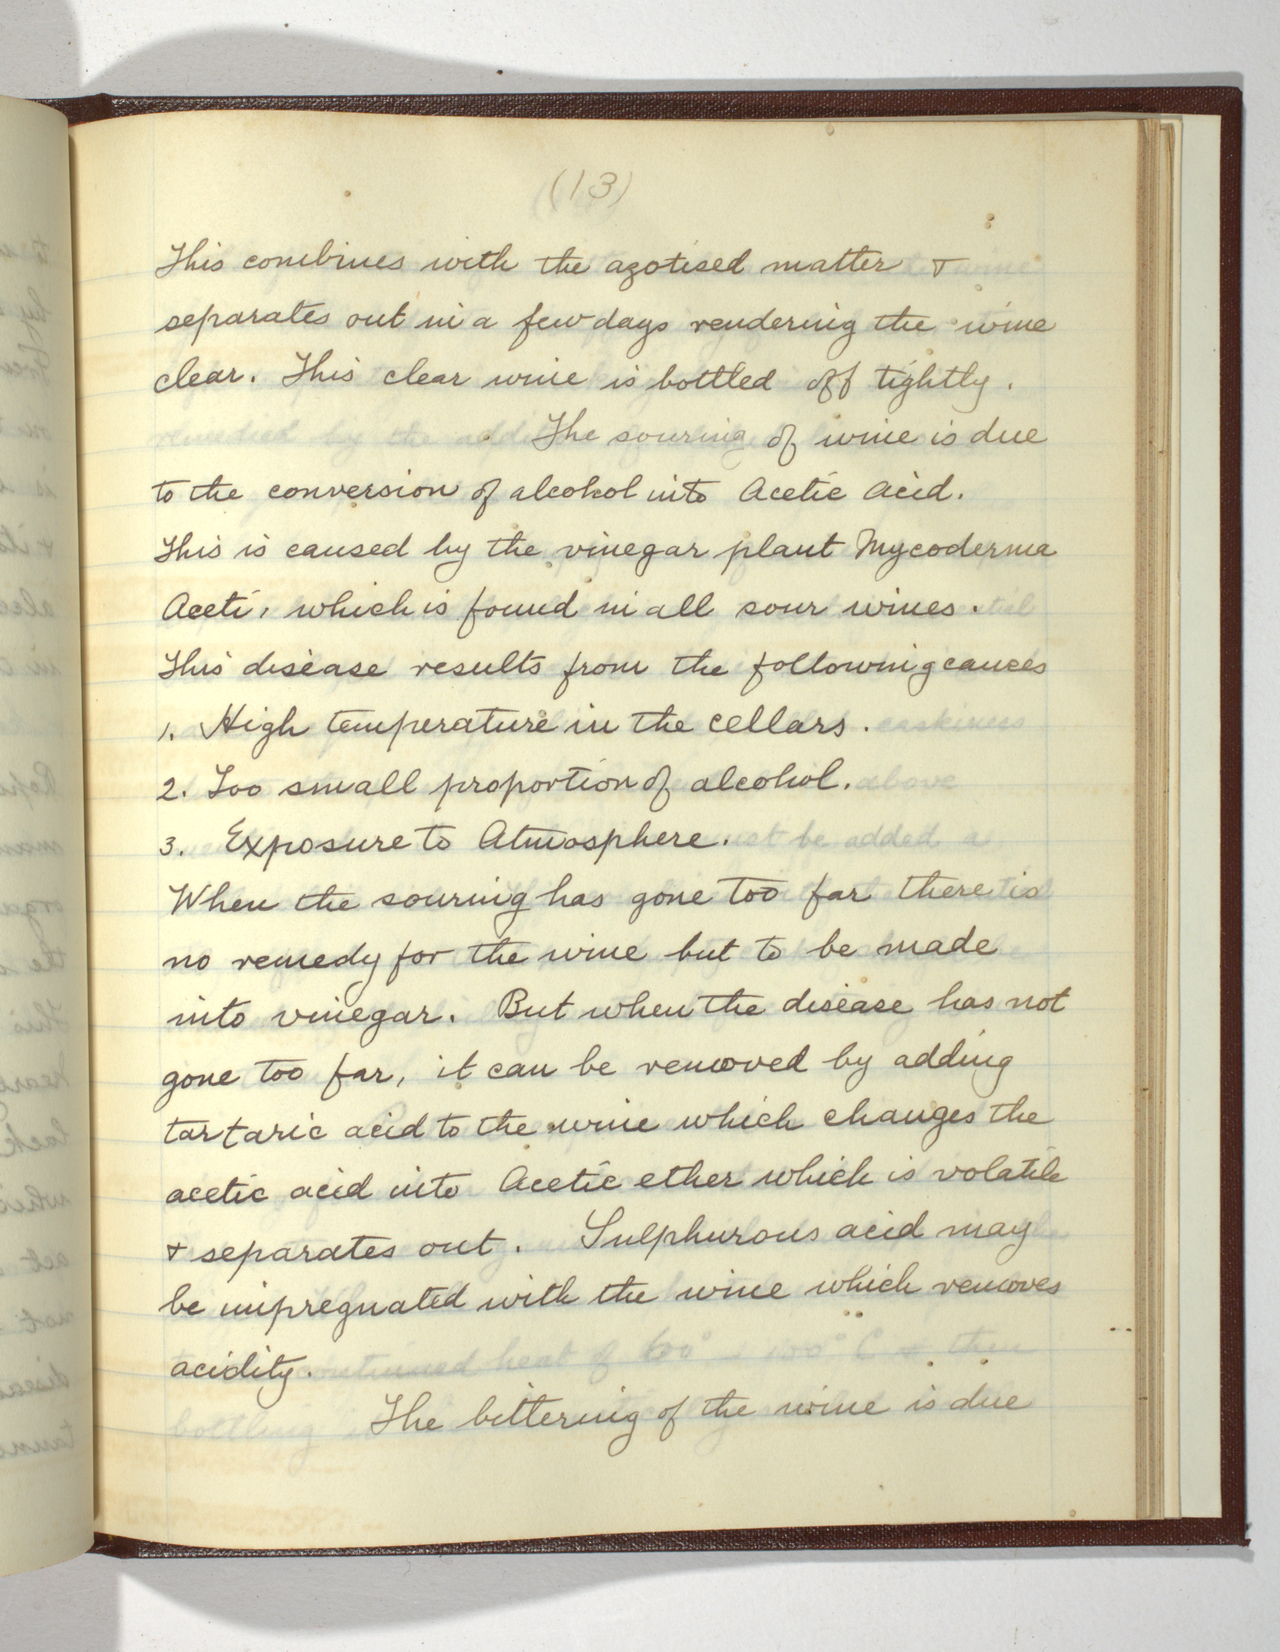 (13)
This combines with the azotised matter &
separates out in a few days rendering the wine
clear. This clear wine is bottled off tightly.
The souring of wine is due
to the conversion of alcohol into Acetic Acid.
This is caused by the vinegar plant Mycoderma
Aceti, which is found in all sour wines.
This disease results from the following causes
1. High temperature in the cellars.
2. Too small proportion of alcohol.
3. Exposure to Atmosphere.
When the souring has gone too far there is
no remedy for the wine but to be made
into vinegar. But when the disease has not
gone too far, it can be removed by adding
tartaric acid to the wine which changes the
acetic acid into Acetic ether which is volatile
& separates out. Sulphurous acid may
be impregnated with the wine which removes
acidity.
The bittering of the wine is due